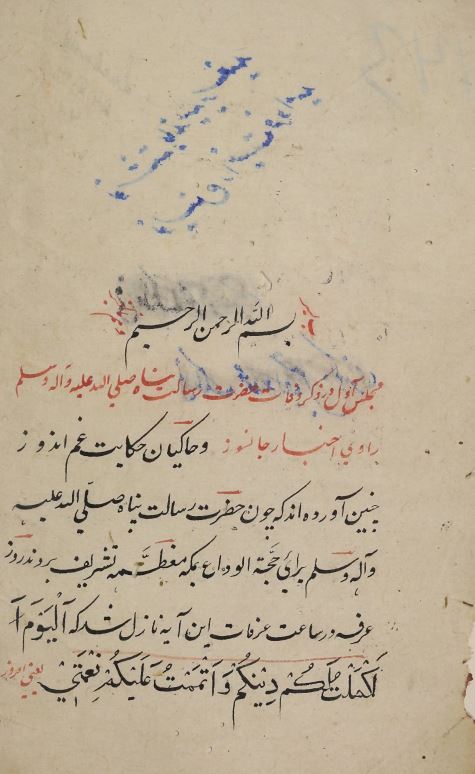 بسم الله الرحمن الرحیم
مجلس اول در ذکر وفات حضرت رسالت پناه صلی الله علیه و آله وسلم
راوی اخبار جانسوز وحاکیان حکایت غم اندوز
چنین آورده اند که چون حضرت رسالت پناه صلّی الله علیه
وآله وسلم برای حجّة الوداع بمکه معظّمه تشریف بردند روز
عرفه در ساعت عرفات این آیه نازل شد که اَلْیَوْمَ اَ
کْمَلْتُ لَکُمْ دِیْنَکُمْ وَاَتْمَمْتُ عَلَیْکُمْ نِعْمَتِیْ یعنی امروز